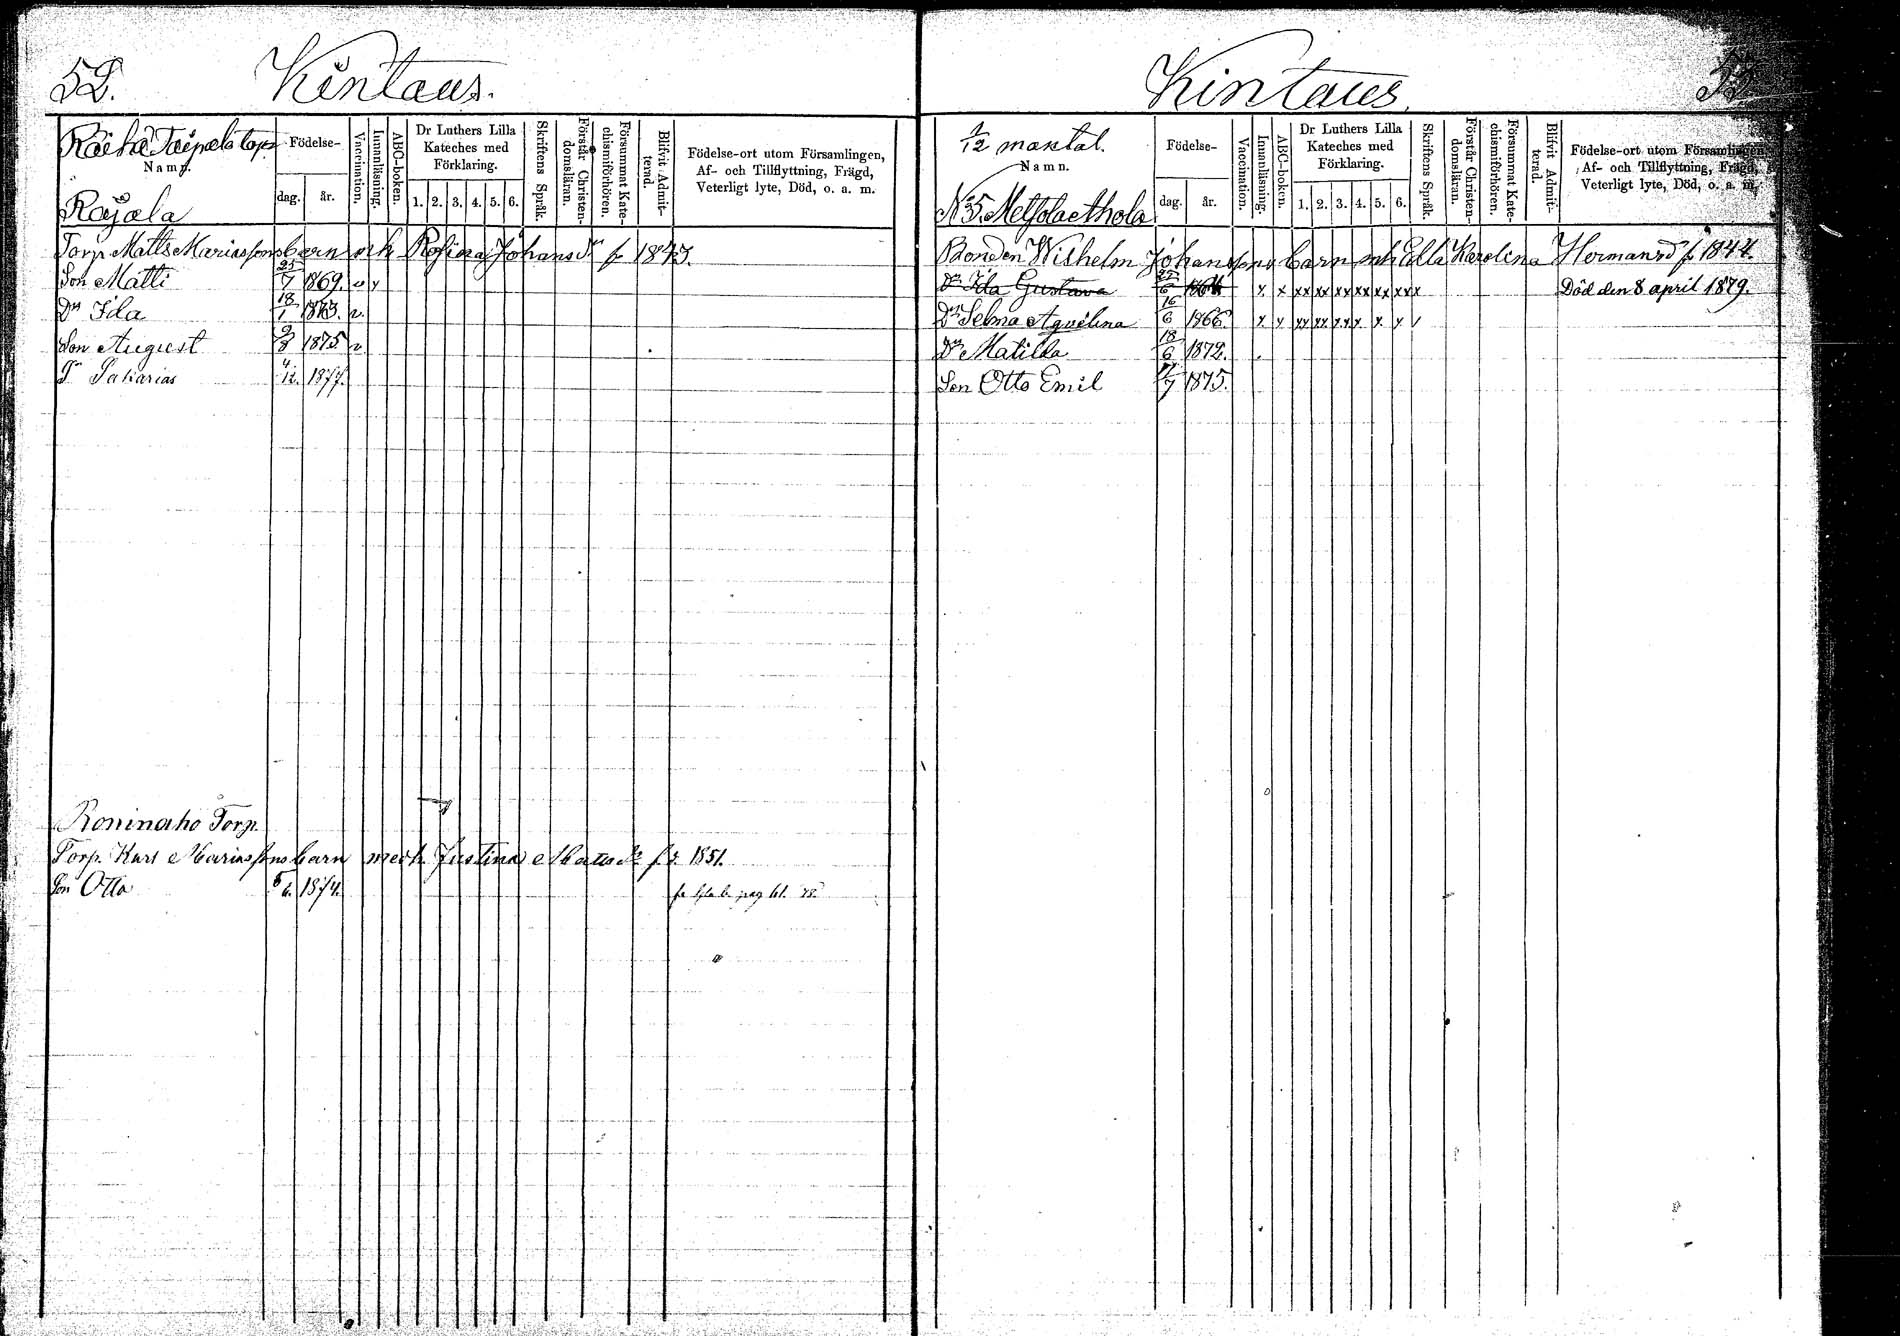 52.
Kintaus.
Räihä Taipale torp
Namn.
Födelse-
dag.
år.
Vaccination.
Innanläsning.
ABC-boken.
Dr Luthers Lilla
Kateches med
Förklaring.
1. 2. 3. 4. 5. 6.
Skriftens Språk.
Förstår Christen-
domsläran.
Försummat Kate-
chismiförhören.
Blifvit Admit-
terad.
Födelse-ort utom Församlingen,
Af- och Tillflyttning, Frägd,
Veterligt lyte, Död, o. a. m.
Rajala
Torp. Matts Mariassons barn och Rosina Johansdr f 1843.
Son Matti 25/7 1869. v v
Dr Ida 18/1 1873. v.
Son August 9/8 1875 v
Dn Sakarias 4/12. 1877.
Roninaho Torp.
Torp. Karl Mariassons barn med h Justina Mattsdr f. 1851.
Son Otto 5/6. 1874.
Kintaus.
53.
1/12 mantal.
Namn.
Födelse-
dag.
år.
Vaccination.
Innanläsning.
ABC-boken.
Dr Luthers Lilla
Kateches med
Förklaring.
1. 2. 3. 4. 5. 6.
Skriftens Språk.
Förstår Christen-
domsläran.
Försummat Kate-
chismiförhören.
Blifvit Admit-
terad.
Födelse-ort utom Församlingen,
Af- och Tillflyttning, Frägd,
Veterligt lyte, Död, o. a. m.
No 5. Metsolaethola
Bonden Wilhelm Johanssons barn mh Ella Karolina Hermansd f 1844.
Dr Ida Gustava 22/6 1864 x x xx xx xx xx xx xxx Död den 8 april 1879.
Dr Selma Aqvilina 16/6 1866 x x xx xx xx x x x
Dr Matilda 18/6 1872.
Son Otto Emil 17/7 1875.